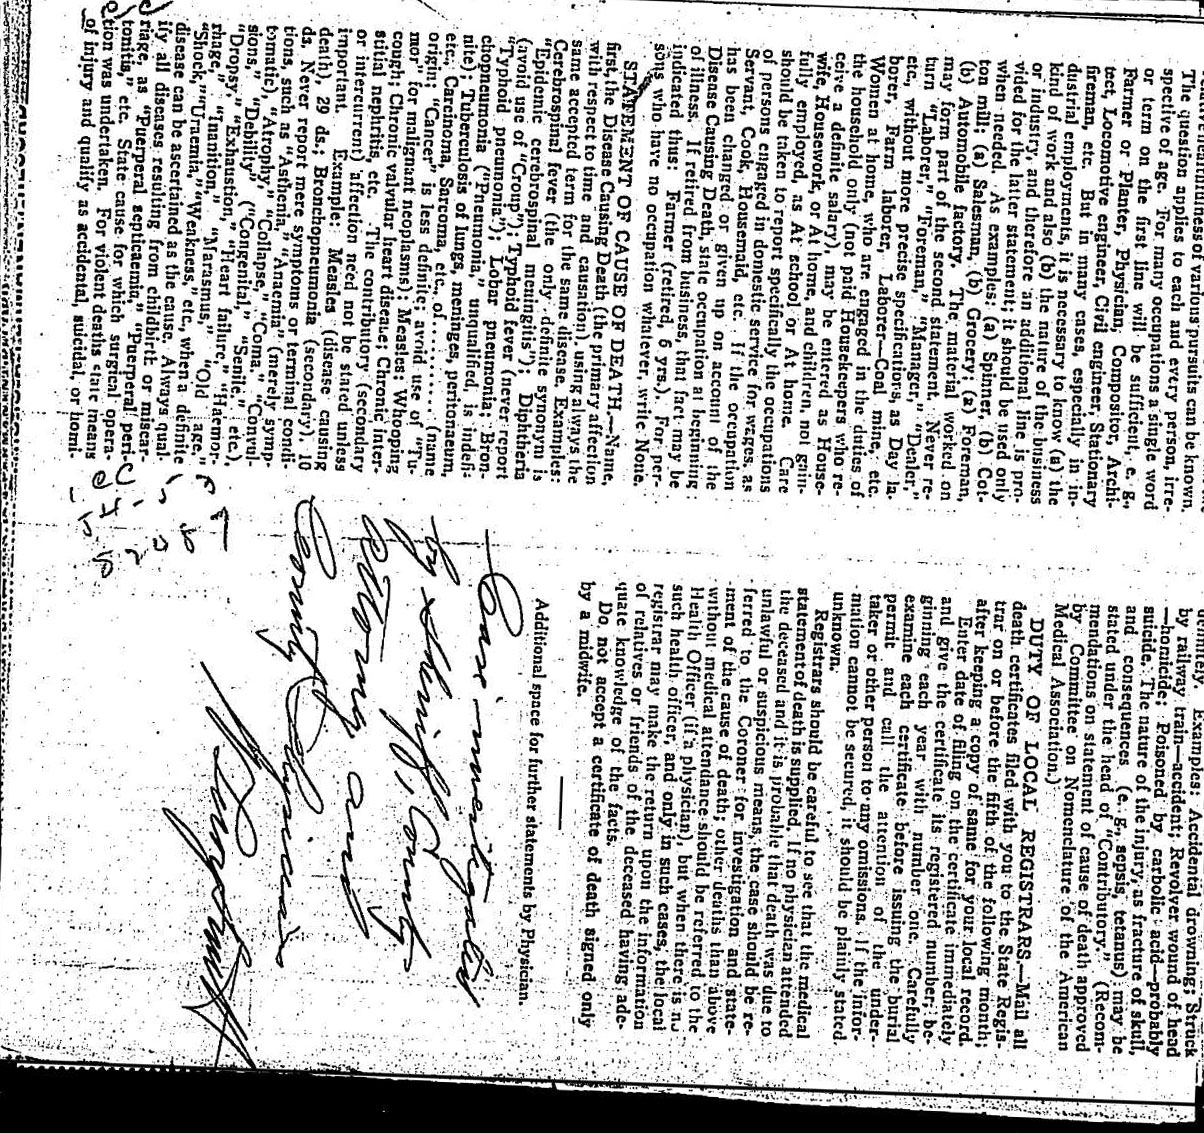 The question applies to each and every person, irre-
spective of age. For many occupations a single word
or term on the first line will be sufficient, e. g.,
Farmer or Planter, Physician, Compositor, Archi-
tect, Locomotive engineer, Civil engineer, Stationary
fireman, etc. But in many cases, especially in in-
dustrial employments, it is necessary to know (a) the
kind of work and also (b) the nature of the business
or industry, and therefore an additional line is pro-
vided for the later statement; it should be used only
when needed. As examples: (a) Spinner, (b) Cot-
ton mill; (a) Salesman, (b) Grocery; (a) Foreman,
(b) Automobile factory. The material worked on
may form part of the second statement. Never re-
turn "Laborer," "Foreman," "Manager," "Dealer,"
etc., without more precise specifications, as Day la-
borer, Farm laborer, Laborer—Coal mine, etc.
Women at home, who are engaged in the duties of
the household only (not paid Housekeepers who re-
ceive a definite salary), may be entered as House-
wife, Housework, or At home, and children, not gain-
fully employed, as At school or At home. Care
should be taken to report specifically the occupations
of persons engaged in domestic service for wages, as
Servant, Cook, Housemaid, etc. If the occupation
has been changed or given up on account of the
Disease Causing Death, state occupation at beginning
of illness. If retired from business, that fact may be
indicated thus: Farmer (retired, 6 yrs.). For per-
sons who have no occupation whatever, write None.
STATEMENT OF CAUSE OF DEATH.—Name,
first, the Disease Causing Death (the primary affection
with respect to time and causation), using always the
same accepted term for the same disease. Examples:
Cerebrospinal fever (the only definite synonym is
"Epidemic cerebrospinal meningitis"); Diphtheria
(avoid use of "Croup"); Typhoid fever (never report
"Typhoid pneumonia"); Lobar pneumonia; Bron-
chopneumonia ("Pneumonia," unqualified, is indefi-
nite); Tuberculosis of lungs, meninges, peritonaeum,
etc., Carcinoma, Sarcoma, etc., of.......... (name
origin; "Cancer" is less definite; avoid use of "Tu-
mor" for malignant neoplasms); Measles; Whooping
cough; Chronic valvular heart disease; Chronic inter-
stitial nephritis, etc. The contributory (secondary
or intercurrent) affection need not be stated unless
important. Example: Measles (disease causing
death), 29 ds.; Bronchopneumonia (secondary), 10
ds. Never report mere symptoms or terminal condi-
tions, such as "Asthenia," "Anaemia" (merely symp-
tomatic), "Atrophy," "Collapse," "Coma," "Convul-
sions," "Debility" ("Congenital," "Senile," etc.),
"Dropsy," "Exhaustion," "Heart failure," "Haemor-
rhage," "Inanition," "Marasmus," "Old age,"
"Shock," "Uraemia," "Weakness," etc., when a definite
disease can be ascertained as the cause. Always qual-
ify all diseases resulting from childbirth or miscar-
riage, as "Puerperal septicaemia," "Puerperal peri-
tonitis," etc. State cause for which surgical opera-
tion was undertaken. For violent deaths state means
of injury and qualify as accidental, suicidal, or homi-
Examples: Accidental drowning; Struck
by railway train—accident; Revolver wound of head
—homicide; Poisoned by carbolic acid—probably
suicide. The nature of the injury, as fracture of skull,
and consequences (e. g., sepsis, tetanus) may be
stated under the head of "Contributory." (Recom-
mendations on statement of cause of death approved
by Committee on Nomenclature of the American
Medical Association.)
DUTY OF LOCAL REGISTRARS.—Mail all
death certificates filed with you to the State Regis-
trar on or before the fifth of the following month;
after keeping a copy of same for your local record.
Enter date of filing on the certificate immediately
and give the certificate its registered number, be-
ginning each year with number one. Carefully
examine each certificate before issuing the burial
permit and call the attention of the under-
taker or other person to any omissions. If the infor-
mation cannot be secured, it should be plainly stated
unknown.
Registrars should be careful to see that the medical
statement of death is supplied. If no physician attended
the deceased and it is probable that death was due to
unlawful or suspicious means, the case should be re-
ferred to the Coroner for investigation and state-
ment of the cause of death; other deaths than above
without medical attendance should be referred to the
Health Officer (if a physician), but when there is no
such health officer, and only in such cases, the local
registrar may make the return upon the information
of relatives or friends of the deceased having ade-
quate knowledge of the facts.
Do not accept a certificate of death signed only
by a midwife.
Additional space for further statements by Physician.
Case investigated
by Sheriff, County
Attorney and
County Physician